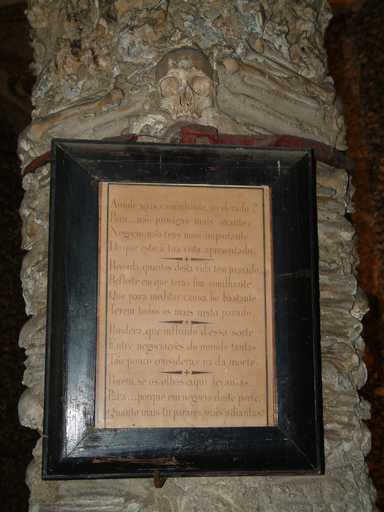 Aonde vais, caminhante, acelerado?
Pára...não prosigas mais avante;
Negocio não tens mais importante,
Do que este, á tua vista apresentado.
Recorda quantos desta vida tem passado,
Reflecte em que terás fim similhante,
Que para meditar causa he bastante
Terem todos os mais nisto parado.
Pondera, que influido d'essa sorte
Entre negociações do mundo tantas,
Tão pouco consideras na da morte;
Porem, se os olhos aqui levantas,
Pára...porque em negocio deste porte,
Quanto mais tu parares, mais adiantas.